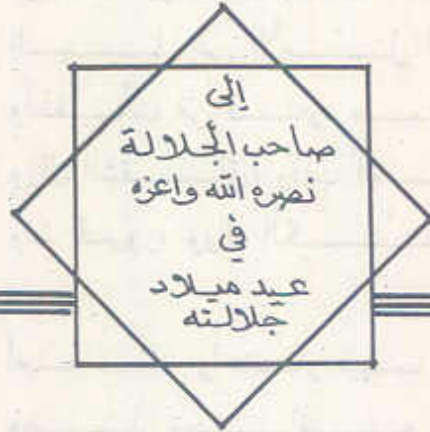 إلى
صاحب الجلالة
نصره الله واعزه
في
عيد ميلاد
جلالته